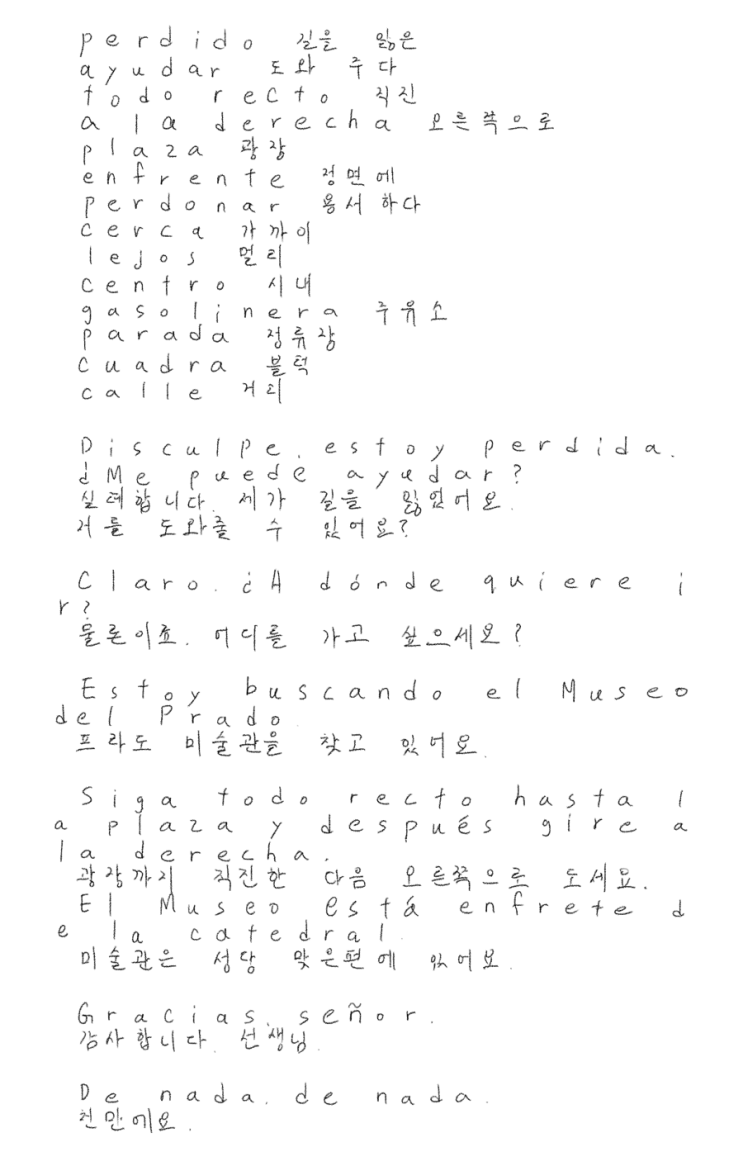 perdido 길을 잃은
ayudar 도와 주다
todo recto 직진
a la derecha 오른쪽으로
plaza 광장
enfrente 정면에
perdonar 용서하다
cerca 가까이
lejos 멀리
centro 시내
gasolinera 주유소
parada 정류장
cuadra 블럭
calle 거리
Disculpe, estoy perdida.
¿Me puede ayudar?
실례합니다. 제가 길을 잃었어요.
저를 도와줄 수 있어요?
Claro. ¿A dónde quiere i
r?
물론이죠. 어디를 가고 싶으세요?
Estoy buscando el Museo
del Prado.
프라도 미술관을 찾고 있어요.
Siga todo recto hasta l
a plaza y después gire a
la derecha.
광장까지 직진한 다음 오른쪽으로 도세요.
El Museo está enfrete d
e la catedral.
미술관은 성당 맞은편에 있어요.
Gracias, señor.
감사합니다. 선생님.
De nada, de nada.
천만에요.